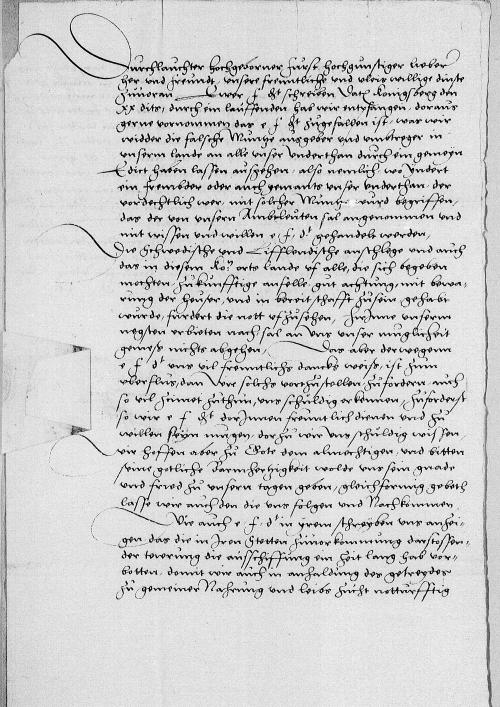 Durchlauchter hochgeborner furst hochgunstiger lieber
her und freundt, unsere freuntliche und vleis willige dinste
zuuoran. Ewer f. dt schreiben Dath Konigsberg den
xx dits, durch ein lauffenden hab wir entpfangen, doraus
gerne vornommen das e f dt zugefallen ist, was wir
widder die falsche Muntze ausgeber und umbtreger in
unserm lande an alle unser underthan durch ein gemeyn
Edict haben lassen ausgehen, also nemlich, wo yndert
ein frembder oder auch gemants unser underthan der
vordechtlich wer, mit solcher Muntze wurd begriffen,
das der von unsern Ambtleuten sal angenommen und
mit wissen und willen e, f, dt gehandelt werden,
Die Schwedische und Lifflendische anschlege und auch
das in diesem orts lande uf alle, die sich begeben
mochten zukunfftige anfelle gut achtung, mit bewa-
rung der heuser, und in bereitschafft zusein gehabt
wurde, furdert die nott ufzusehen, unserm
negsten erbieten nach sal an uns unser muglicheit
gemess nichts abgehen, Das aber derwegenn
e f dt uns vil freuntlichs dancks weiss, ist zum
uberfluss, dan wir solchs vortzustellen zu fordern, auch
so vil zuthun, uns schuldig erkennen, zuforderst
so wir e f dt dorInnen freuntlich dienen und zu
willen seyn mugen, dar zu wir uns schuldig wissen,
wir hoffen aber zu Gote dem almechtigen, und bitten
seine gotliche Barmhertzigkeit wolde uns sein gnade
und frid zu unsern tagen geben, gleichformig gebeth
lasse wir auch den die uns folgen und Nachkommen,
Wie auch e, f, dt in yrem schreyben uns antzei-
gen, das die in Iren Stetten zuuorkommung
der teuerung die ausschiffung ein zeit lang hab vor-
botten, domit wir auch in anhaldung des getreydes
zu gemeiner Nahrung und leibs zucht notturfftig